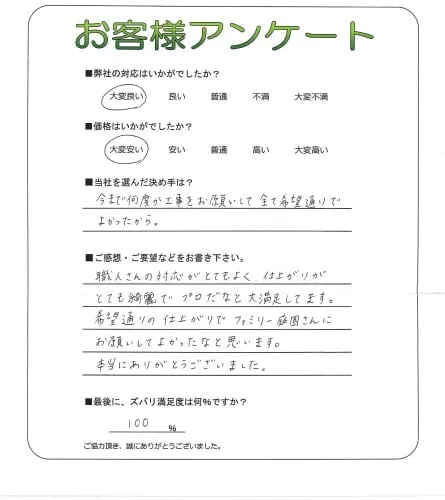 お客様アンケート
■弊社の対応はいかがでしたか？
大変良い 良い 普通 不満 大変不満
■価格はいかがでしたか？
大変安い 安い 普通 高い 大変高い
■当社を選んだ決め手は？
今まで何度か工事をお願いして全て希望通りで
よかったから。
■ご感想・ご要望などをお書き下さい。
職人さんの対応がとてもよく、仕上がりが
とても綺麗でプロだなと大満足してます。
希望通りの仕上がりでファミリー庭園さんに
お願いしてよかったなと思います。
本当にありがとうございました。
■最後に、ズバリ満足度は何％ですか？
100 ％
ご協力頂き、誠にありがとうございました。